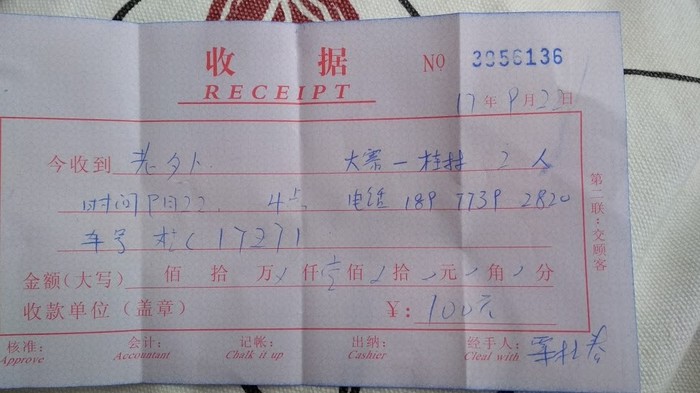 收 据 № 3956136
RECEIPT
17年9月22日
今收到 老外 大寨一桂林 2人
时间9月22. 4点 电话 189 7739 2820
车号 桂C 17271
金额(大写) 佰 拾 万 仟 壹佰 拾 元 角 分
收款单位(盖章) ¥: 100元
核准: 会计: 记帐: 出纳: 经手人:
Approve Accountant Chalk it up Cashier Cleal with
第二联:交顾客